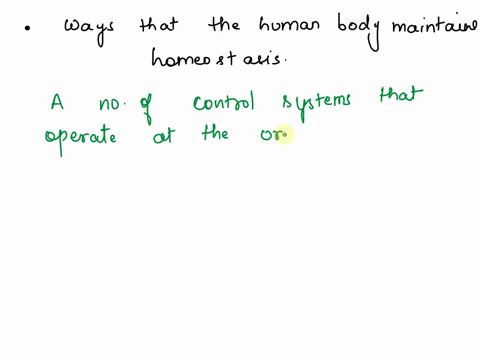 • Ways that the human body maintains
homeostasis.
A no. of control systems that
operate at the or